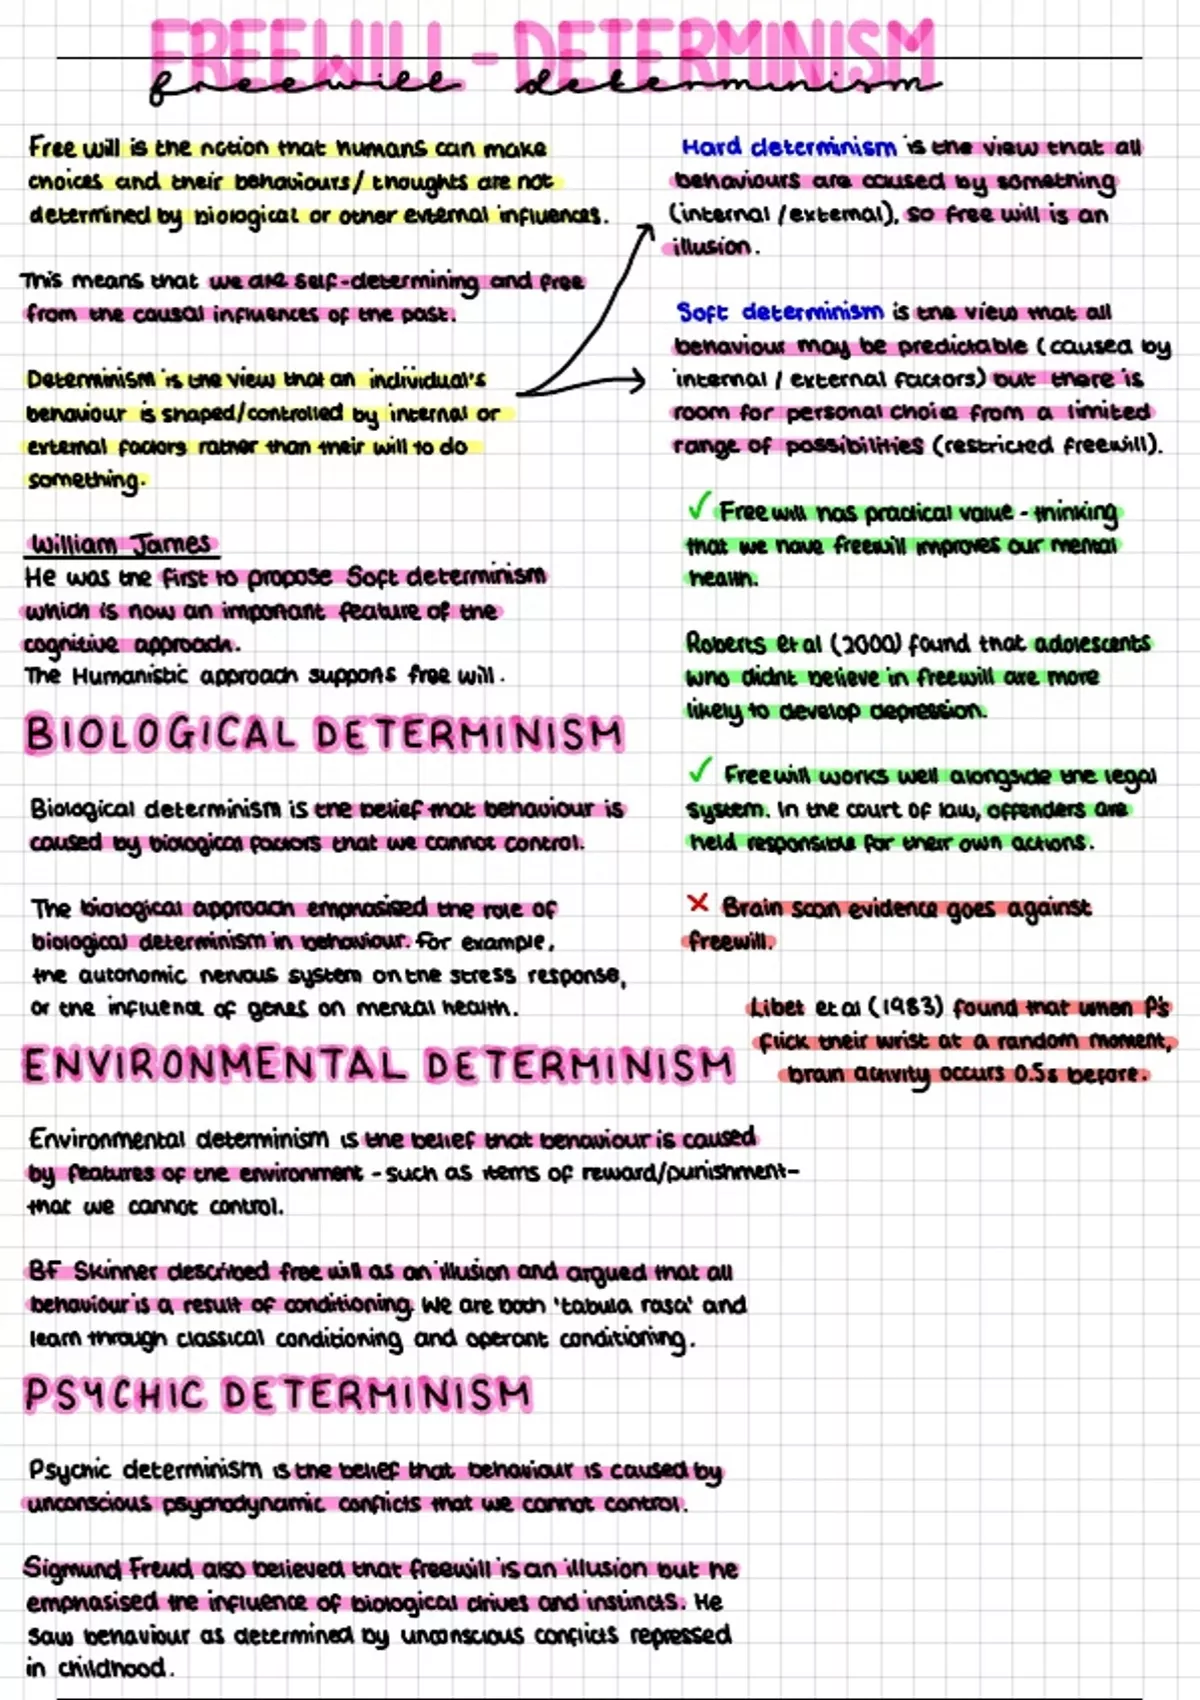 FREEWILL - DETERMINISM
freewill determinism
Free will is the notion that humans can make
choices and their behaviours/ thoughts are not
determined by biological or other external influences.
This means that we are self-determining and free
from the causal influences of the past.
Determinism is the view that an individual's
behaviour is shaped/controlled by internal or
external factors rather than their will to do
something.
William James
He was the first to propose Soft determinism
which is now an important feature of the
cognitive approach.
The Humanistic approach supports free will.
BIOLOGICAL DETERMINISM
Biological determinism is the belief that behaviour is
caused by biological factors that we cannot control.
The biological approach emphasised the role of
biological determinism in behaviour. For example,
the autonomic nervous system on the stress response,
or the influence of genes on mental health.
ENVIRONMENTAL DETERMINISM
Environmental determinism is the belief that behaviour is caused
by features of the environment - such as items of reward/punishment-
that we cannot control.
BF Skinner described free will as an illusion and argued that all
behaviour is a result of conditioning. We are both 'tabula rasa' and
learn through classical conditioning and operant conditioning.
PSYCHIC DETERMINISM
Psychic determinism is the belief that behaviour is caused by
unconscious psychodynamic conflicts that we cannot control.
Sigmund Freud also believed that freewill is an illusion but he
emphasised the influence of biological drives and instincts. He
saw behaviour as determined by unconscious conflicts repressed
in childhood.
Hard determinism is the view that all
behaviours are caused by something
(internal /external), so free will is an
illusion.
Soft determinism is the view that all
behaviour may be predictable (caused by
internal / external factors) but there is
room for personal choice from a limited
range of possibilities (restricted freewill).
✓ Free will has practical value - thinking
that we have freewill improves our mental
health.
Roberts et al (2000) found that adolescents
who didnt believe in freewill are more
likely to develop depression.
✓ Freewill works well alongside the legal
system. In the court of law, offenders are
held responsible for their own actions.
✗ Brain scan evidence goes against
freewill.
Libet et al (1983) found that when P's
flick their wrist at a random moment,
brain activity occurs 0.5s before.